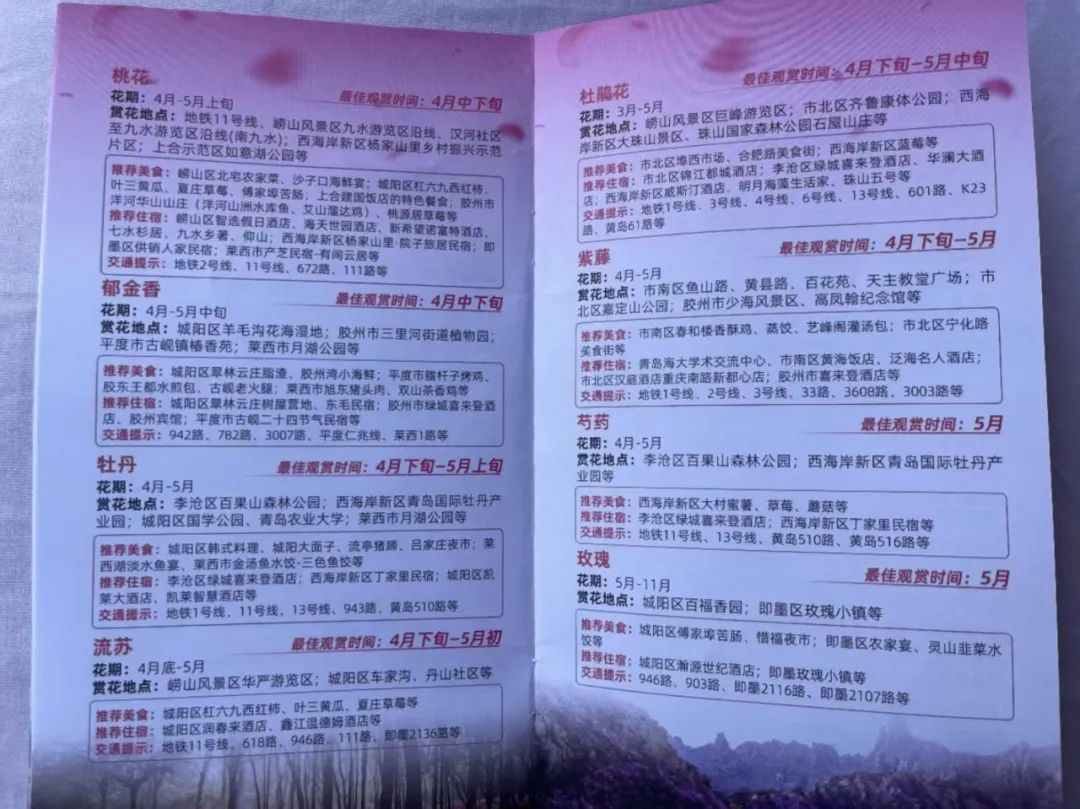 桃花
最佳观赏时间：4月中下旬
花期：4月-5月上旬
赏花地点：地铁11号线、崂山风景区九水游览区沿线、汉河社区
至九水游览区沿线(南九水)；西海岸新区杨家山里乡村振兴示范
片区；上合示范区如意湖公园等
推荐美食：崂山区北宅农家菜、沙子口海鲜宴；城阳区杠六九西红柿、
叶三黄瓜、夏庄草莓、傅家埠苦肠；上合建国饭店的特色餐食；胶州市
洋河华山山庄（洋河山洲水库鱼、艾山溜达鸡）、桃源居草莓等
推荐住宿：崂山区智选假日酒店、海天世园酒店、新希望诺富特酒店、
七水杉居、九水乡著、仰山；西海岸新区杨家山里·院子旅居民宿；即
墨区供销人家民宿；莱西市产芝民宿-有间云居等
交通提示：地铁2号线、11号线、672路、111路等
郁金香
最佳观赏时间：4月中下旬
花期：4月-5月中旬
赏花地点：城阳区羊毛沟花海湿地；胶州市三里河街道植物园；
平度市古岘镇椿香苑；莱西市月湖公园等
推荐美食：城阳区翠林云庄脂渣、胶州湾小海鲜；平度市腊杆子烤鸡、
胶东王都水煎包、古岘老火腿；莱西市旭东猪头肉、双山茶香鸡等
推荐住宿：城阳区翠林云庄树屋营地、东毛民宿；胶州市绿城喜来登酒
店、胶州宾馆；平度市古岘二十四节气民宿等
交通提示：942路、782路、3007路、平度仁兆线、莱西1路等
牡丹
最佳观赏时间：4月下旬-5月上旬
花期：4月-5月
赏花地点：李沧区百果山森林公园；西海岸新区青岛国际牡丹产
业园；城阳区国学公园、青岛农业大学；莱西市月湖公园等
推荐美食：城阳区韩式料理、城阳大面子、流亭猪蹄、吕家庄夜市；莱
西湖淡水鱼宴、莱西市金汤鱼水饺-三色鱼饺等
推荐住宿：李沧区绿城喜来登酒店；西海岸新区丁家里民宿；城阳区凯
莱大酒店、凯莱智慧酒店等
交通提示：地铁1号线、11号线、13号线、943路、黄岛510路等
流苏
最佳观赏时间：4月下旬-5月初
花期：4月底-5月
赏花地点：崂山风景区华严游览区；城阳区车家沟、丹山社区等
推荐美食：城阳区杠六九西红柿、叶三黄瓜、夏庄草莓等
推荐住宿：城阳区润春来酒店、鑫江温德姆酒店等
交通提示：地铁11号线、618路、946路、111路、即墨2136路等
杜鹃花
最佳观赏时间：4月下旬-5月中旬
花期：3月-5月
赏花地点：崂山风景区巨峰游览区；市北区齐鲁康体公园；西海
岸新区大珠山景区、珠山国家森林公园石屋山庄等
推荐美食：市北区埠西市场、合肥路美食街；西海岸新区蓝莓等
推荐住宿：市北区锦江都城酒店；李沧区绿城喜来登酒店、华澜大酒
店；西海岸新区威斯汀酒店、明月海藻生活家、珠山五号等
交通提示：地铁1号线、3号线、4号线、6号线、13号线、601路、K23
路、黄岛61路等
紫藤
最佳观赏时间：4月下旬-5月
花期：4月-5月
赏花地点：市南区鱼山路、黄县路、百花苑、天主教堂广场；市
北区嘉定山公园；胶州市少海风景区、高凤翰纪念馆等
推荐美食：市南区春和楼香酥鸡、蒸饺、艺峰阁灌汤包；市北区宁化路
美食街等
推荐住宿：青岛海大学术交流中心、市南区黄海饭店、泛海名人酒店；
市北区汉庭酒店重庆南路新都心店；胶州市喜来登酒店等
交通提示：地铁1号线、2号线、3号线、33路、3608路、3003路等
芍药
最佳观赏时间：5月
花期：4月-5月
赏花地点：李沧区百果山森林公园；西海岸新区青岛国际牡丹产
业园等
推荐美食：西海岸新区大村蜜薯、草莓、蘑菇等
推荐住宿：李沧区绿城喜来登酒店；西海岸新区丁家里民宿等
交通提示：地铁11号线、13号线、黄岛510路、黄岛516路等
玫瑰
最佳观赏时间：5月
花期：5月-11月
赏花地点：城阳区百福香园；即墨区玫瑰小镇等
推荐美食：城阳区傅家埠苦肠、惜福夜市；即墨区农家宴、灵山韭菜水
饺等
推荐住宿：城阳区瀚源世纪酒店；即墨玫瑰小镇等
交通提示：946路、903路、即墨2116路、即墨2107路等